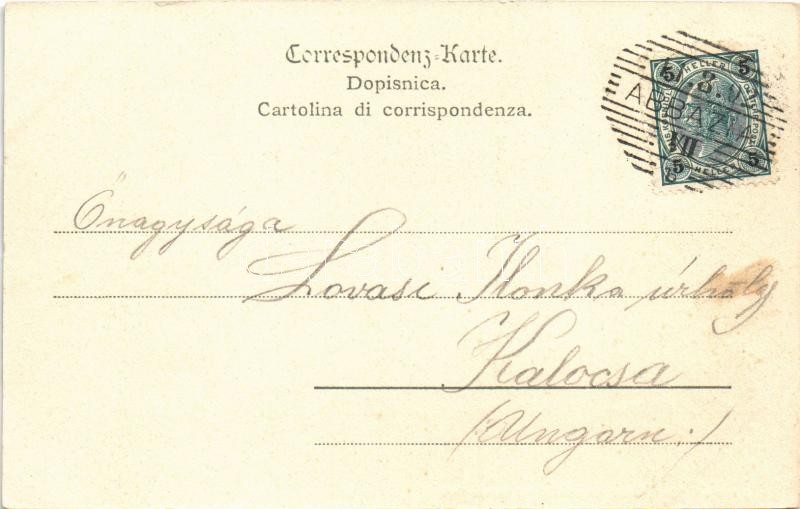 Correspondenz-Karte.
Dopisnica.
Cartolina di corrispondenza.
5 HELLER 5
ABBAZIA
5 HELLER 5
Őnagysága
Lovasi Ilonka úrhölgy
Kalocsa
(Ungarn.)